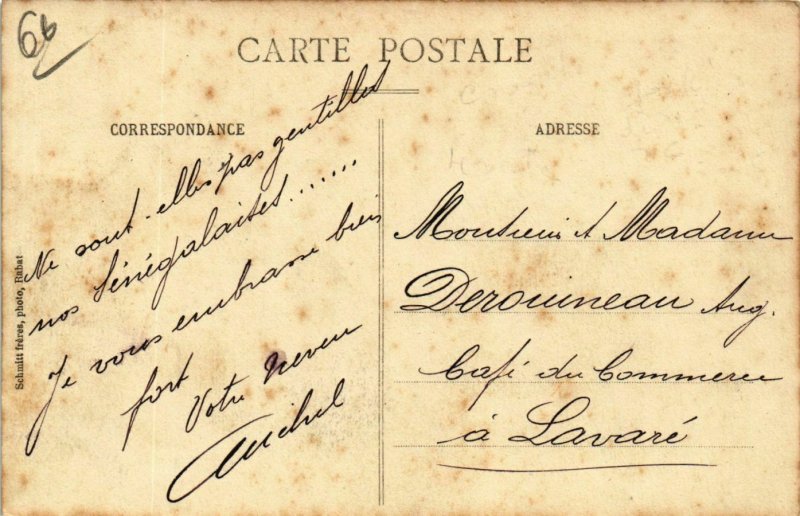 66
CARTE POSTALE
CORRESPONDANCE
Ne sont-elles pas gentilles
nos Sénégalaises.......
Je vous embrasse bien
fort
Votre neveu
Michel
Schmitt frères, photo, Rabat
ADRESSE
Monsieur et Madame
Derouineau Aug.
Café du Commerce
à Lavaré